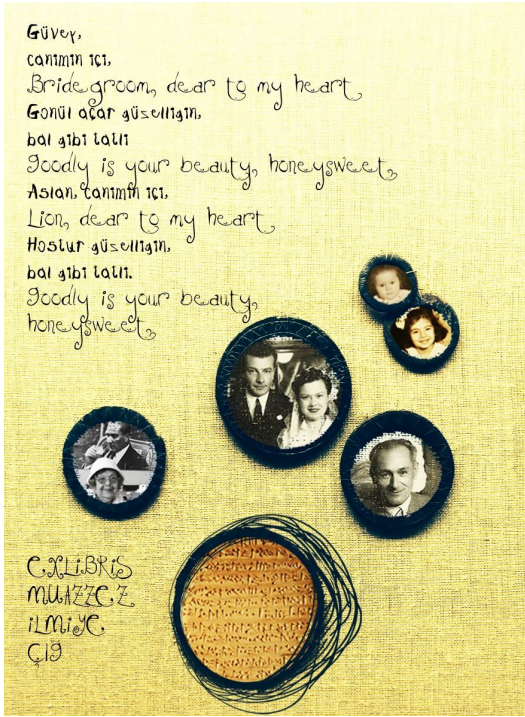 Güvey,
canımın içi,
Bridegroom, dear to my heart,
Gönül açar güzelliğin,
bal gibi tatlı
Goodly is your beauty, honeysweet,
Aslan, canımın içi,
Lion, dear to my heart,
Hoştur güzelliğin,
bal gibi tatlı.
Goodly is your beauty,
honeysweet,
EXLiBRiS
MUAZZEZ
iLMiYE
ÇIĞ